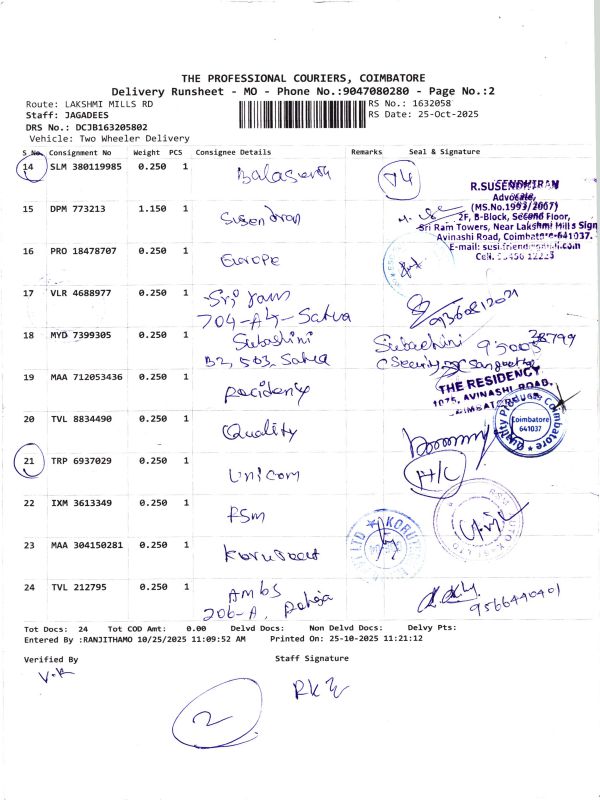 THE PROFESSIONAL COURIERS, COIMBATORE
Delivery Runsheet - MO - Phone No.:9047080280 - Page No.:2
Route: LAKSHMI MILLS RD RS No.: 1632058
Staff: JAGADEES RS Date: 25-Oct-2025
DRS No.: DCJB163205802
Vehicle: Two Wheeler Delivery
S No. Consignment No Weight PCS Consignee Details Remarks Seal & Signature
14 SLM 380119985 0.250 1
R.SUSENDHIRAN
Advocate,
(MS.No.1993/2007)
2F, B-Block, Second Floor,
Sri Ram Towers, Near Lakshmi Mills Sign
Avinashi Road, Coimbatore-641037.
15 DPM 773213 1.150 1 Susendran
16 PRO 18478707 0.250 1 Europe
17 VLR 4688977 0.250 1 Sri ram
704-A4-Satva
18 MYD 7399305 0.250 1 Subashini Subashini
B2, 503, Satva
19 MAA 712053436 0.250 1
THE RESIDENCY
1075, AVINASHI ROAD,
20 TVL 8834490 0.250 1 Quality
Quality Products Coimbatore
Coimbatore
641037
21 TRP 6937029 0.250 1 Unicom
22 IXM 3613349 0.250 1 FSM
23 MAA 304150281 0.250 1
24 TVL 212795 0.250 1 AMBS
206-A, 9566440401
Tot Docs: 24 Tot COD Amt: 0.00 Delvd Docs: Non Delvd Docs: Delvy Pts:
Entered By :RANJITHAMO 10/25/2025 11:09:52 AM Printed On: 25-10-2025 11:21:12
Verified By Staff Signature
V.K
2